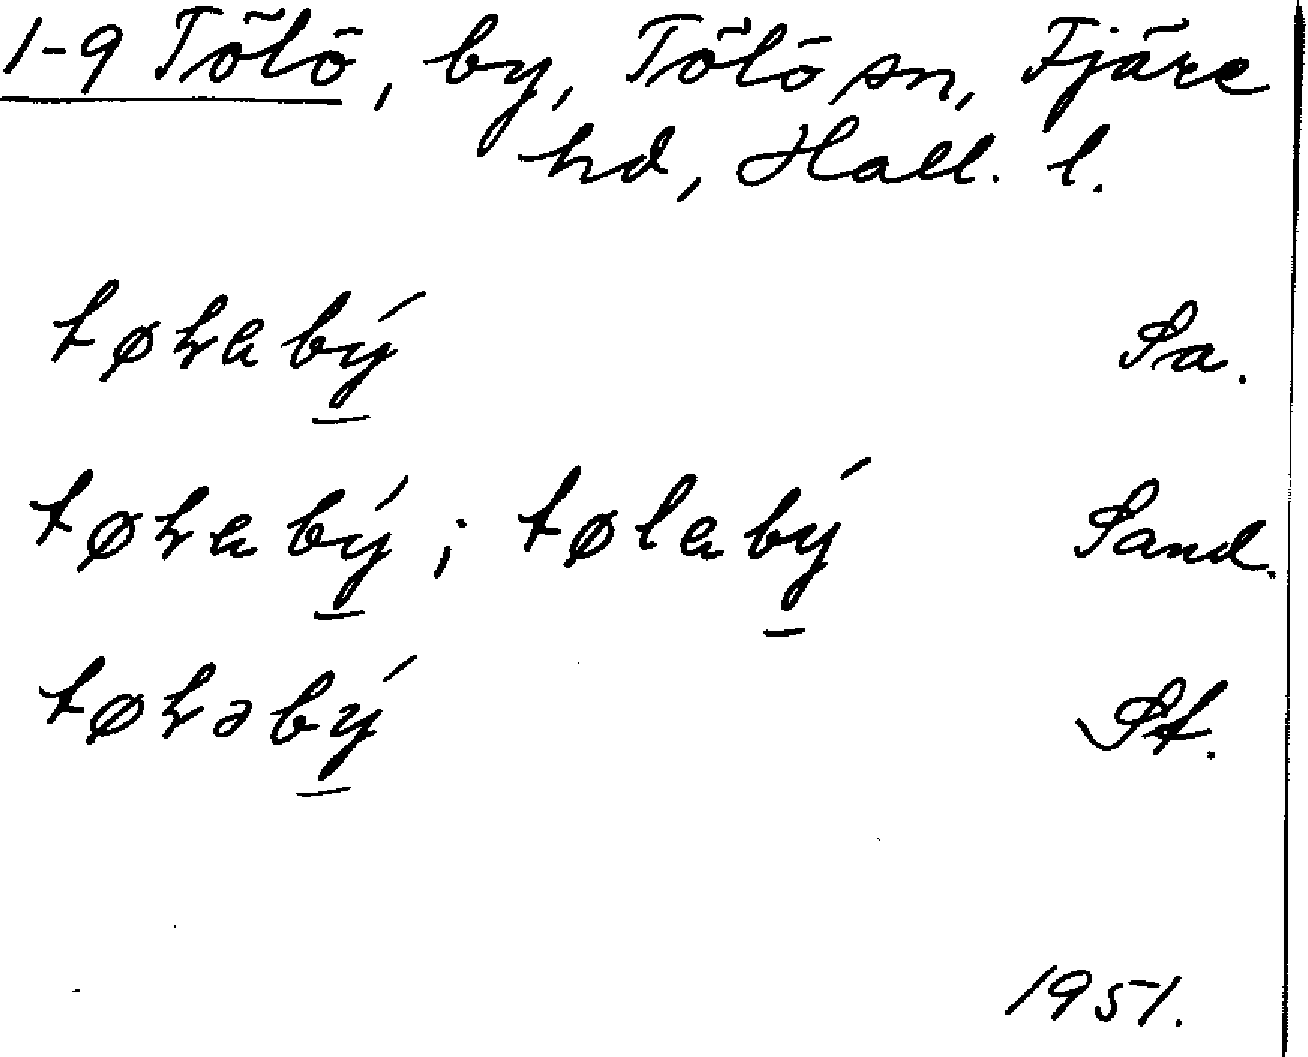 1-9 Tölö, by, Tölö sn, Fjäre
hd, Hall. l.
tøɽabý Sa.
tøɽabý; tølabý Sand.
tøɽəbý St.
1951.